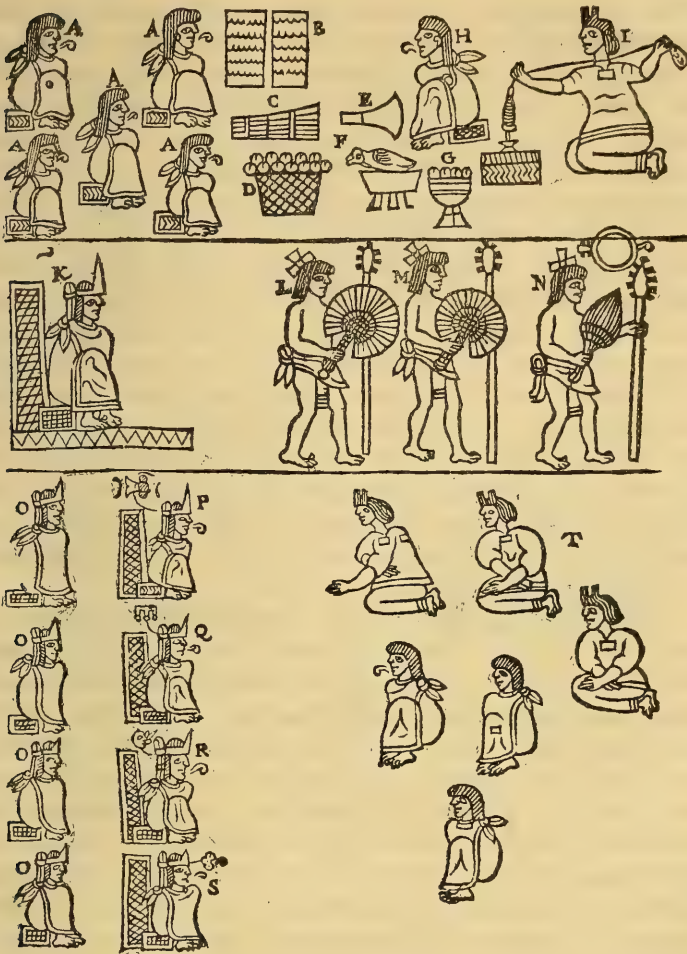 A A B H I
A C E
F
A A D G
K L M N
O P
T
O Q
O R
O S